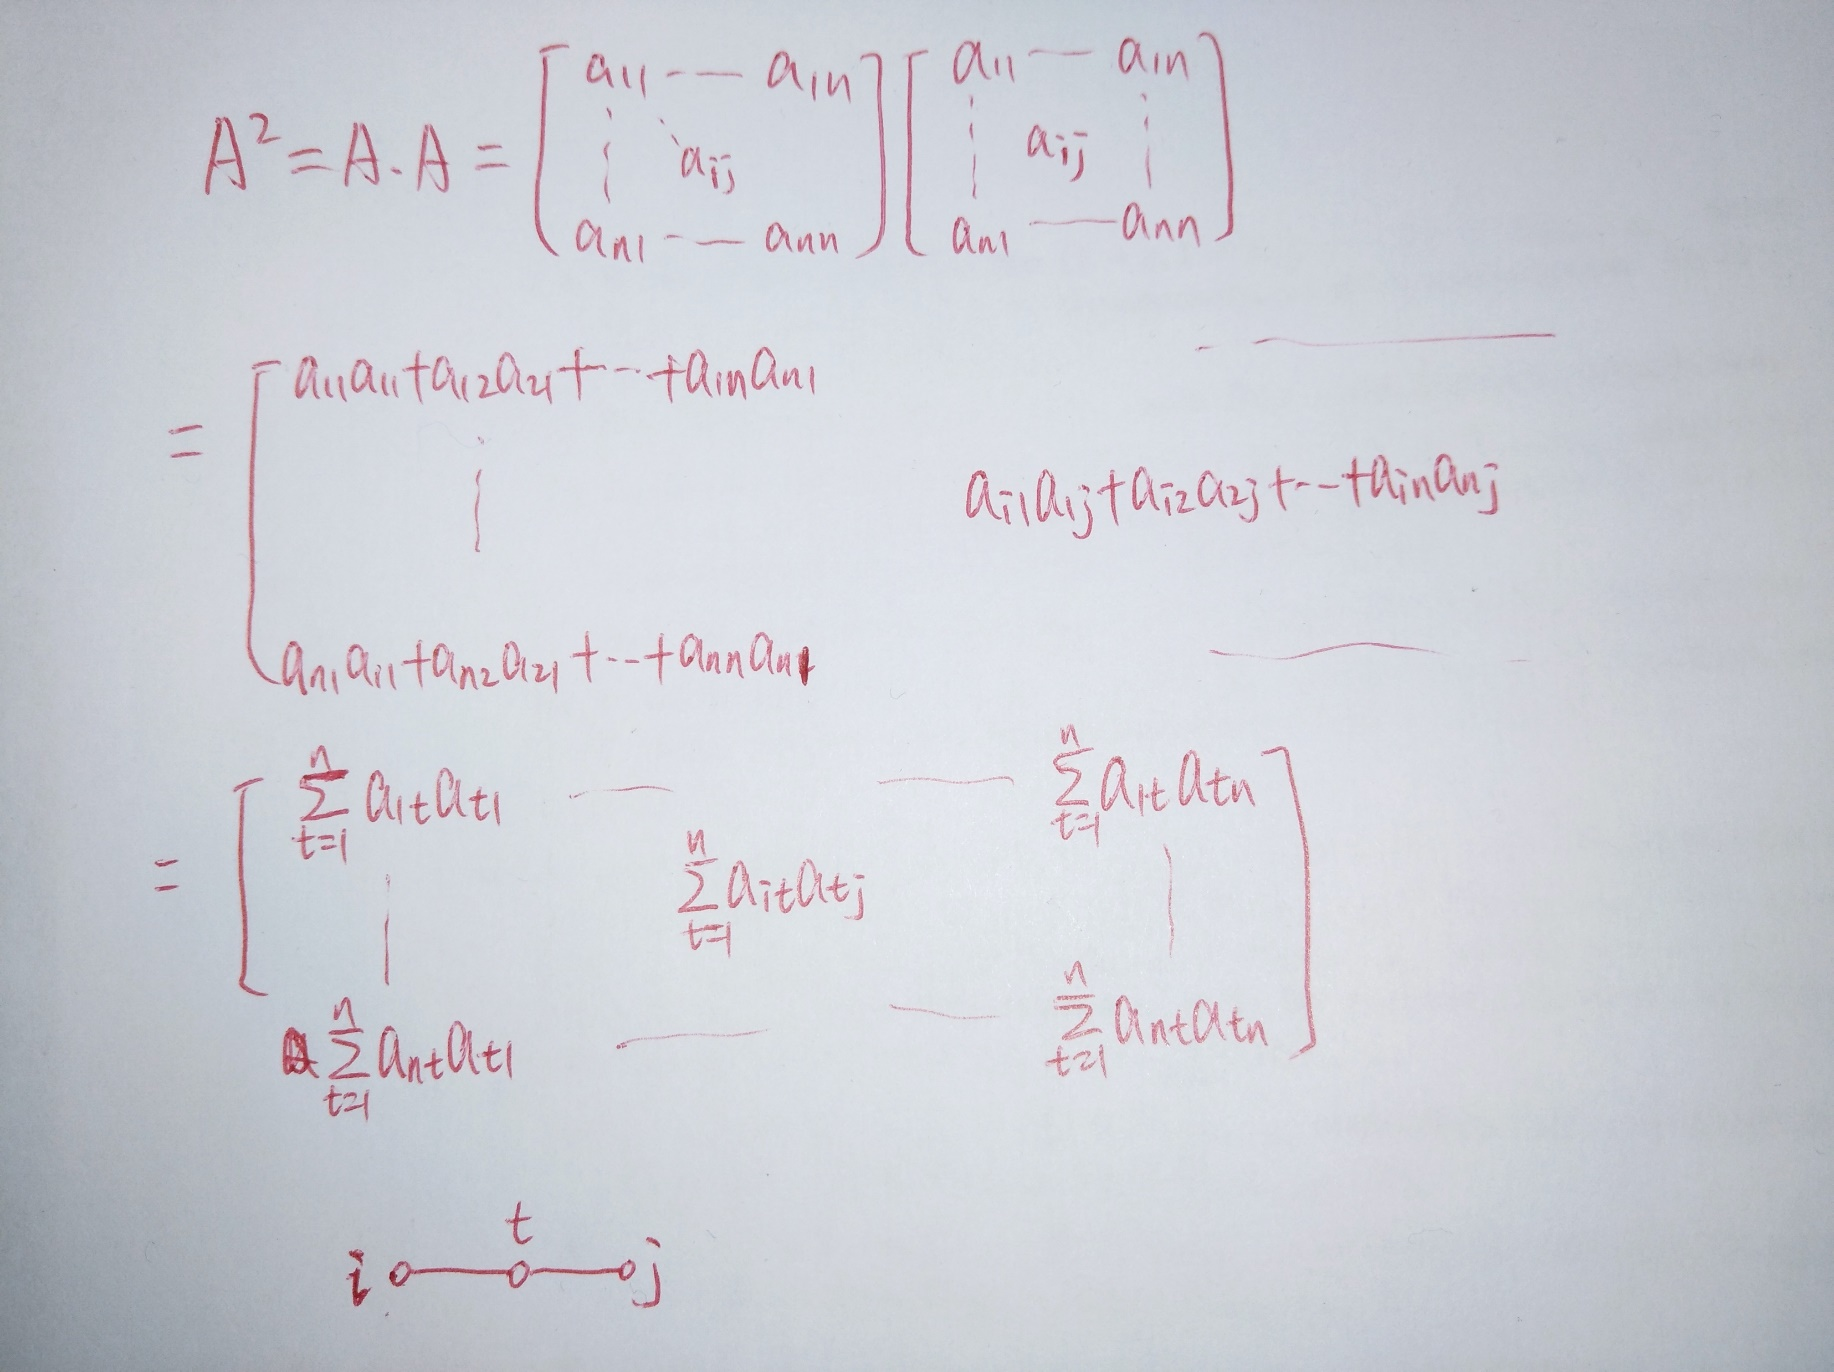 A² = A·A = [ a₁₁ -- a₁ₙ ] [ a₁₁ — a₁ₙ ]
⋮ ⋱ aᵢⱼ ⋮ aᵢⱼ ⋮
aₙ₁ -- aₙₙ aₙ₁ — aₙₙ
= [ a₁₁a₁₁+a₁₂a₂₁+--+a₁ₙaₙ₁ ——
⋮ aᵢ₁a₁ⱼ+aᵢ₂a₂ⱼ+--+aᵢₙaₙⱼ
aₙ₁a₁₁+aₙ₂a₂₁+--+aₙₙaₙ₁ ——
= [ \sum_{t=1}^{n} a_{1t}a_{t1} — — \sum_{t=1}^{n} a_{1t}a_{tn} ]
⋮ \sum_{t=1}^{n} a_{it}a_{tj} ⋮
\sum_{t=1}^{n} a_{nt}a_{t1} — — \sum_{t=1}^{n} a_{nt}a_{tn}
t
i j